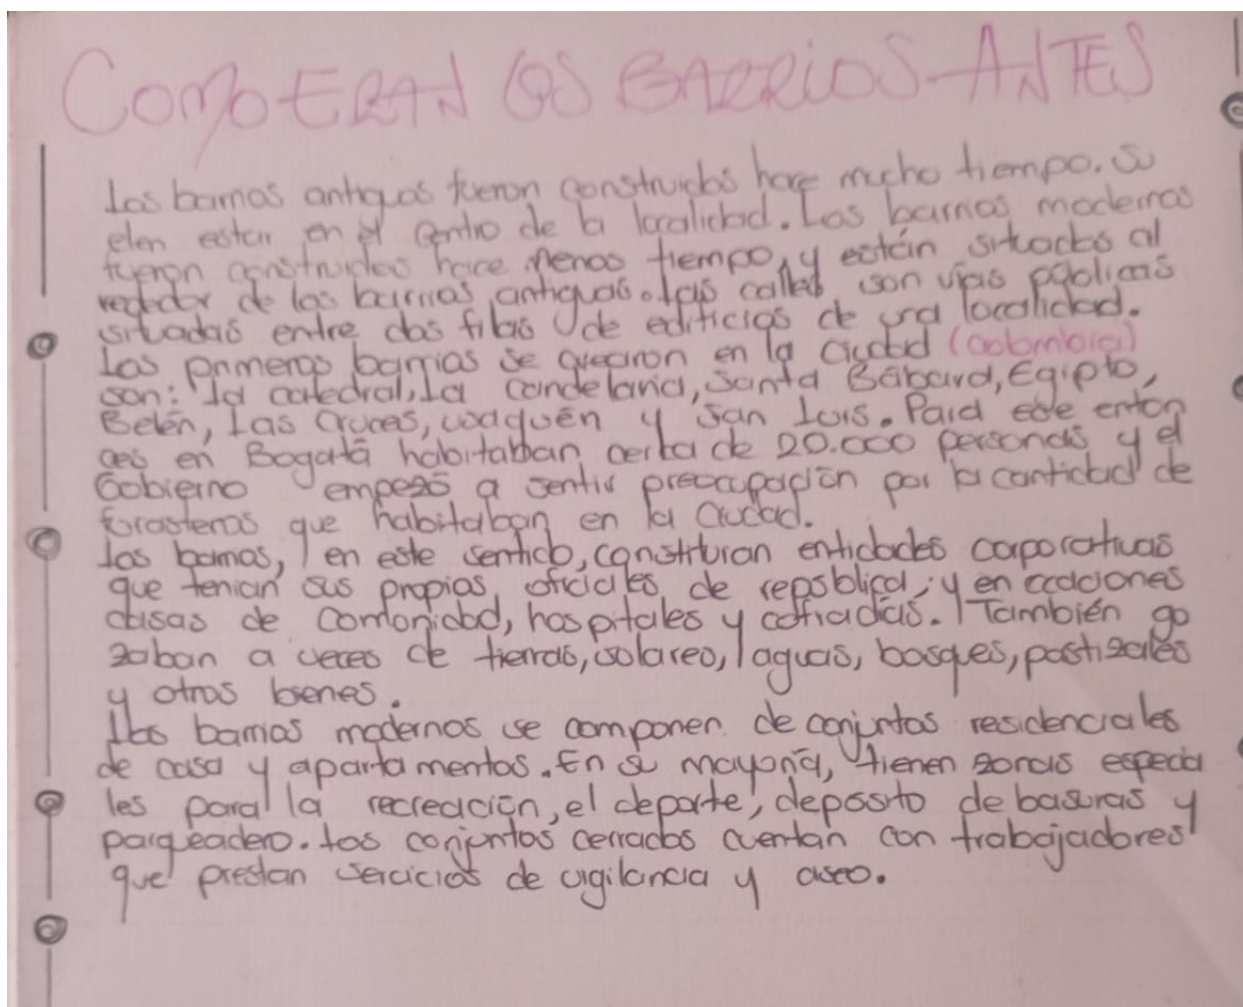 COMO ERAN LOS BARRIOS ANTES
Los barrios antiguos fueron construidos hace mucho tiempo. Su
elen estar en el centro de la localidad. Los barrios modernos
fueron construidos hace menos tiempo, y están situados al
rededor de los barrios antiguos. Las calles son vías públicas
situadas entre dos filas de edificios de una localidad.
Los primeros barrios se crearon en la ciudad (colombia)
son: la catedral, la candelaria, Santa Bábara, Egipto,
Belén, Las cruces, usaquén y San Luis. Para ese enton
ces en Bogotá habitaban cerca de 20.000 personas y el
Gobierno empezó a sentir preocupación por la cantidad de
forasteros que habitaban en la ciudad.
Los barrios, en este sentido, constituian entidades corporativas
que tenian sus propios oficiales de república; y en ocaciones
casas de comonidad, hospitales y cofradías. También go
zaban a veces de tierras, solares, aguas, bosques, pastizales
y otros bienes.
Los barrios modernos se componen de conjuntos residenciales
de casa y apartamentos. En su mayoría, tienen zonas especia
les para la recreación, el deporte, deposito de basuras y
parqueadero. Los conjuntos cerrados cuentan con trabajadores
que prestan sercicios de vigilancia y aseo.